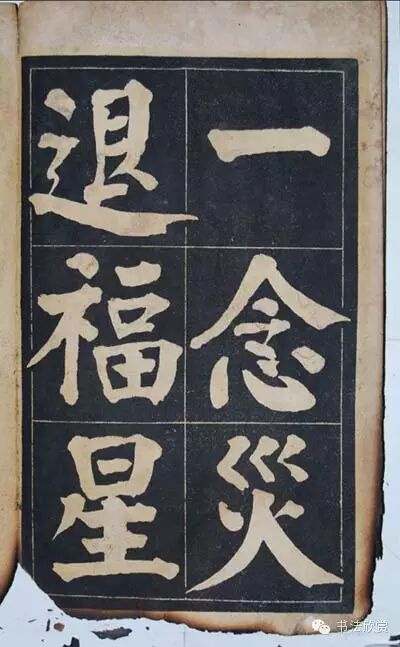 一念災
退福星
书法欣赏